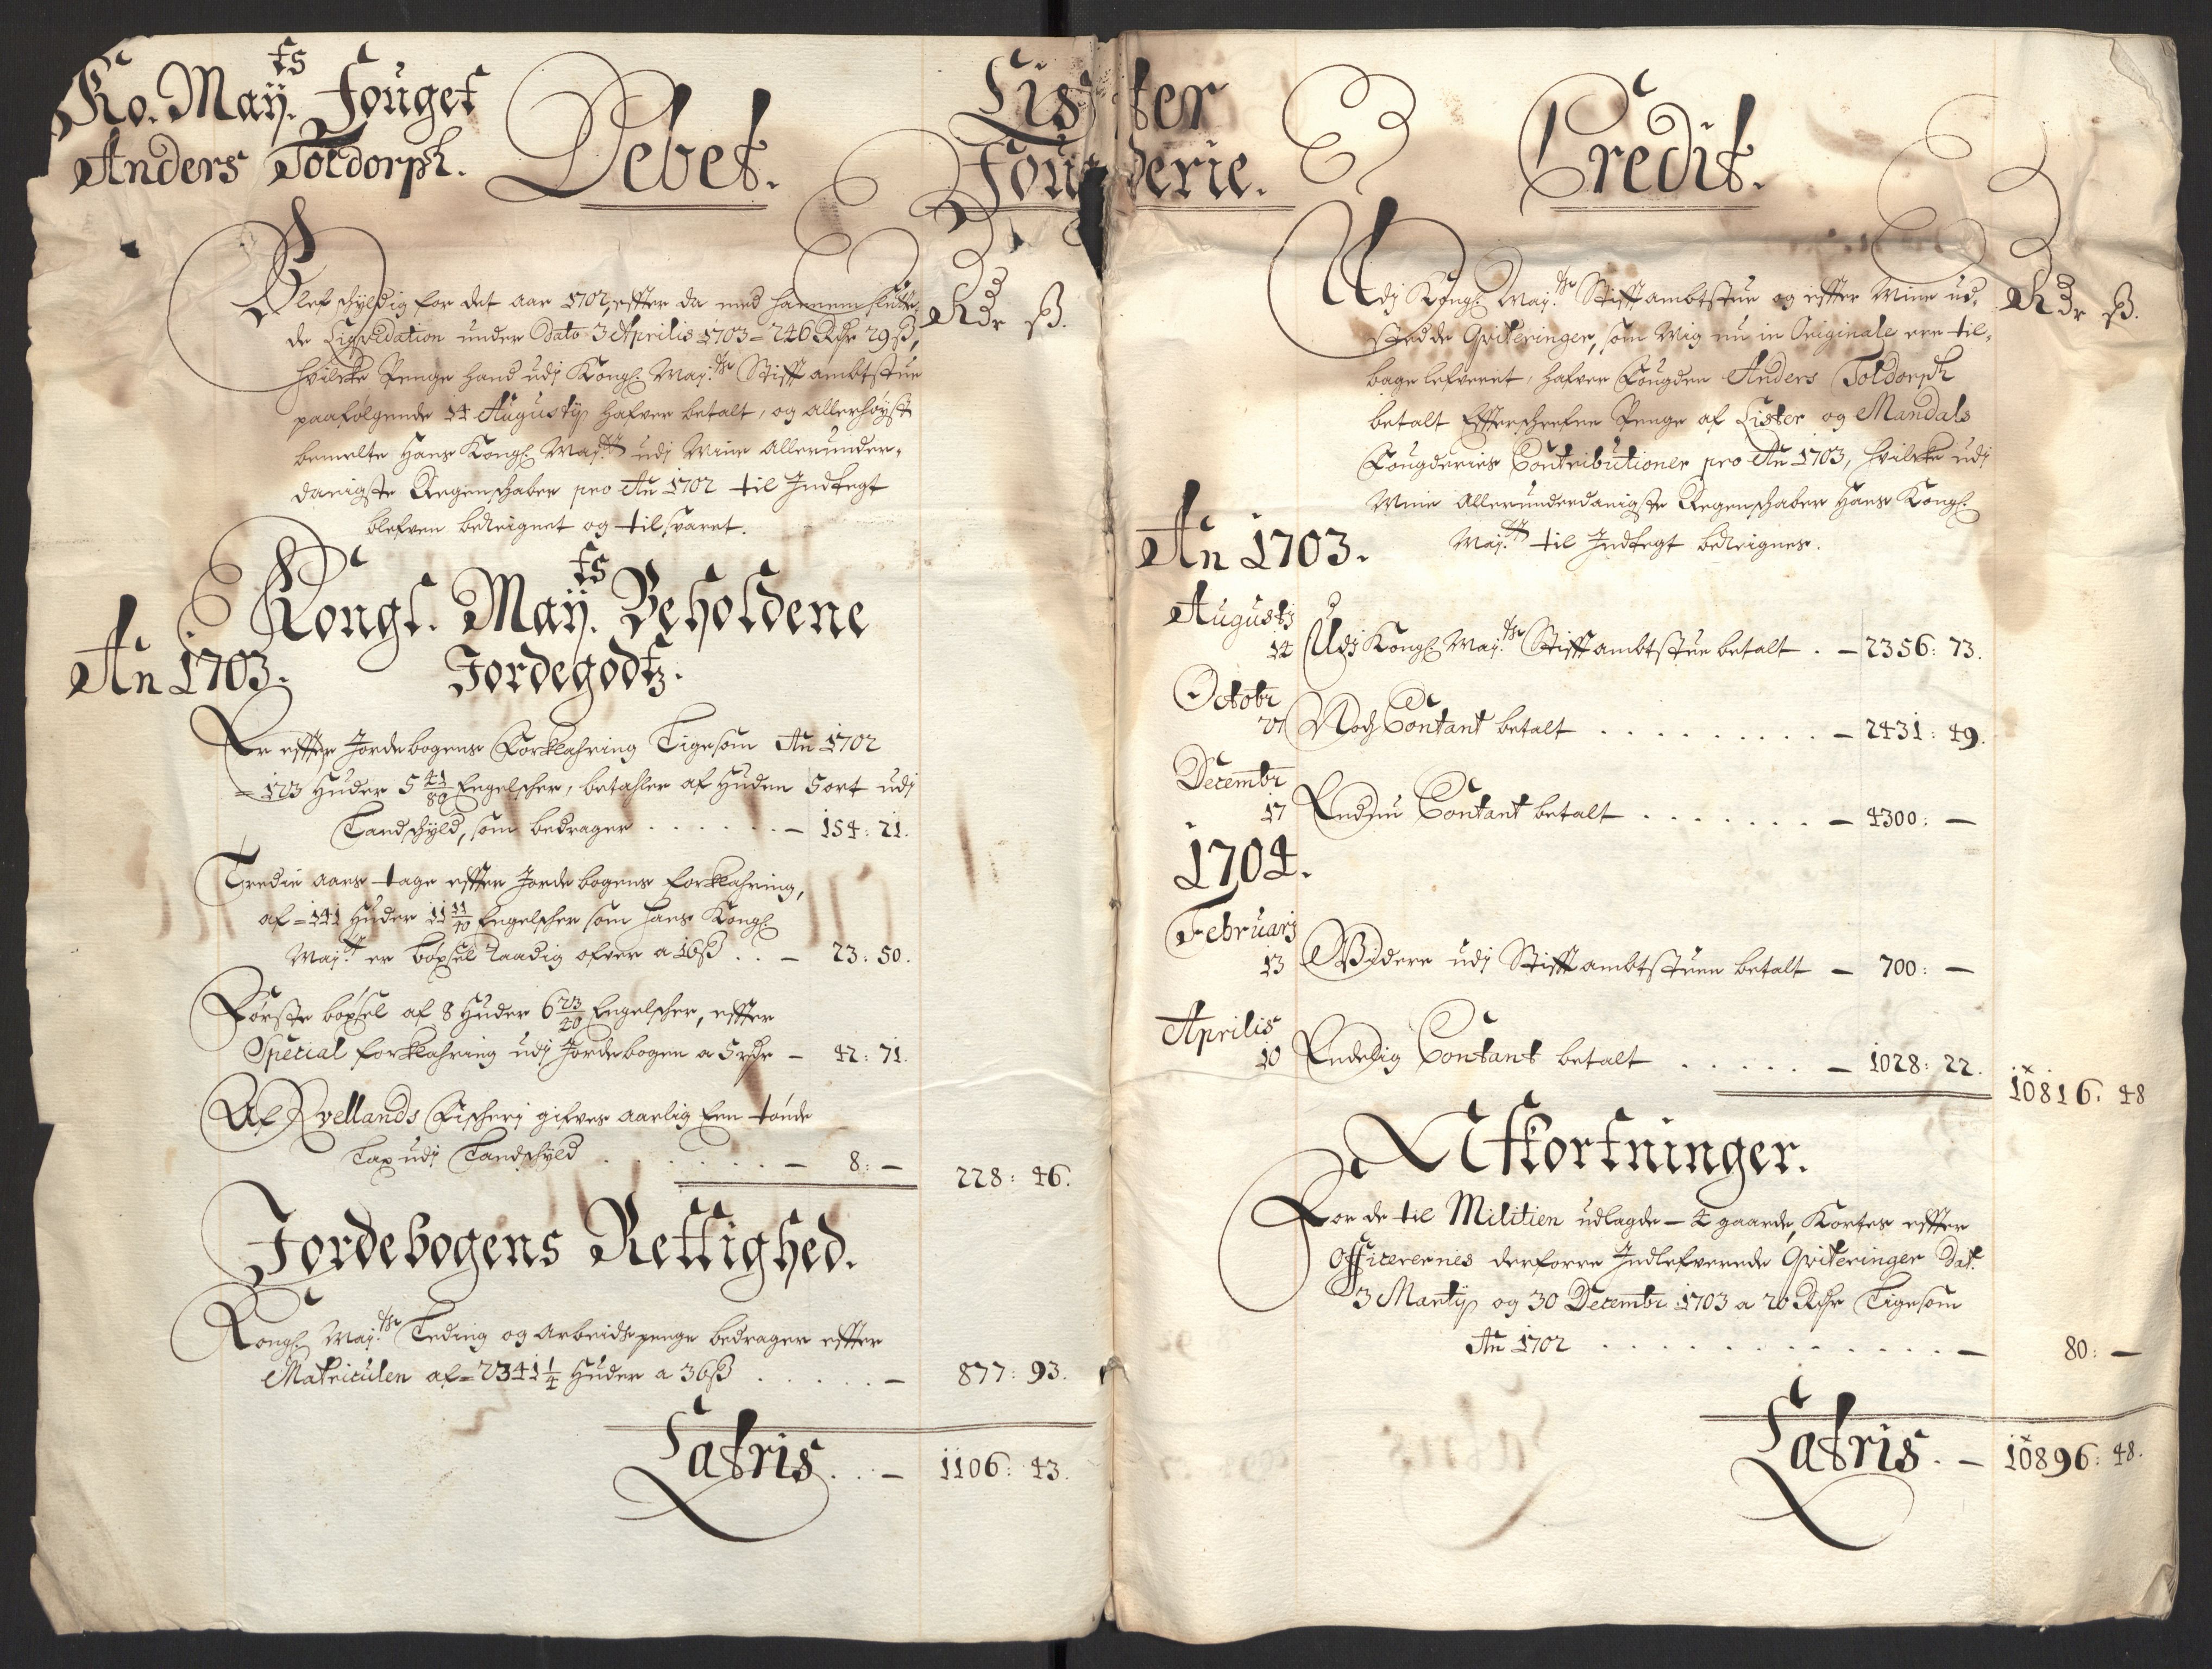 Ko. May.ts Fouget
Anders Toldorph.
Debet.
Lister
Fougderie.
Credit.
Rdr ß.
Blef schyldig for det aar 1702, effter da med hannem slutte-
de Liqvidation under Dato 3 Aprilis 1703 = 246 Rdr 29 ß,
hvilcke Penge hand udj Kongl. May.ts Stifft ambtstue
paafølgende 14 Augustij hafver betalt, og allerhøyst
bemelte Hans Kongl. May.tt udj Mine Allerunder-
danigste Regenschaber pro An 1702 til Indtegt
blefven bereignet og tilsvaret.
Kongl. May.ts Beholdene
An 1703. Jordegodtz.
Er effter Jordebogens Forklahring Ligesom An 1702
= 123 Huder 5 41/80 Engelscher, betahler af Huden 5 ort udj
Landschyld, som bedrager . . . . . . — 154: 21.
Tredie aars tage effter Jordebogens forklahring,
af = 141 Huder 11 11/40 Engelscher som Hans Kongl.
May.tt er bøxsel raadig ofver a 16 ß . . — 23: 50.
Første bøxsel af 8 Huder 6 23/40 Engelscher, effter
Special forklahring udj Jordebogen a 5 rdr — 42: 71.
Af Qvellands Fischerj gifves aarlig Een tønde
Lax udj Landschyld . . . . . . — 8: —
228: 46.
Jordebogens Rettighed.
Kongl. May.ts Leding og arbeidspenge bedrager effter
Matriculen af = 2341 1/4 Huder a 36 ß . . . . . — 877: 93.
Latris . . — 1106: 43.
Rdr ß.
Udj Kongl. May.ts Stifft ambtstue og effter Mine ud-
stedde Qviteringer, som Mig nu in Originale ere til-
bage lefveret, hafver Fougden Anders Toldorph
betalt Effterschrefne Penge af Lister og Mandals
Fougderies Contributioner pro An 1703, hvilcke udj
Mine Allerunderdanigste Regenschaber Hans Kongl.
An 1703. May.tt til Indtegt bereignes.
Augustj
14 Udj Kongl. May.ts Stifft ambtstue betalt . — 2356: 73.
Octobr
27 Noch Contant betalt . . . . . . . . . — 2431: 49.
Decembr
17 Endnu Contant betalt . . . . . . . — 4300: —
1704.
Februarj
13 Widere udj Stifft ambtstuen betalt — 700: —
Aprilis
10 Endelig Contant betalt . . . . . — 1028: 22.
10816: 48
Afkortninger.
For de til Militien udlagde — 4 gaarde, Kortes effter
Officerernes derforre Indlefverede Qviteringer Dat.
3 Martij og 30 Decembr 1703 a 20 Rdr Ligesom
An 1702 . . . . . . . . . . . . . — 80: —
Latris . — 10896: 48.